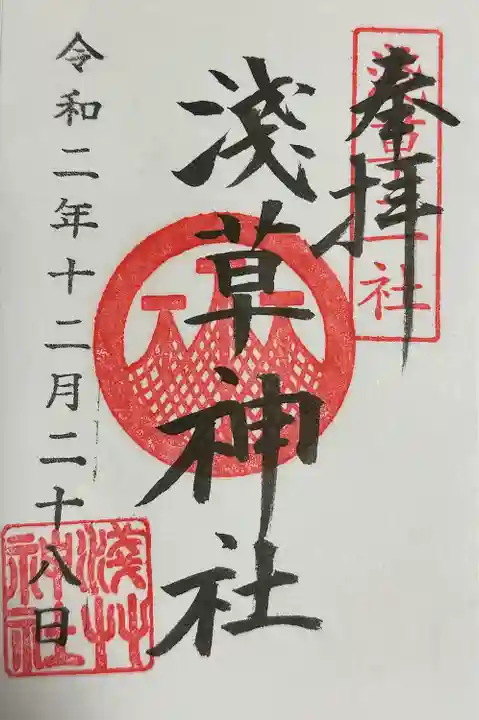 奉拝
浅草神社
淺草神社
令和二年十二月二十八日
淺草
神社